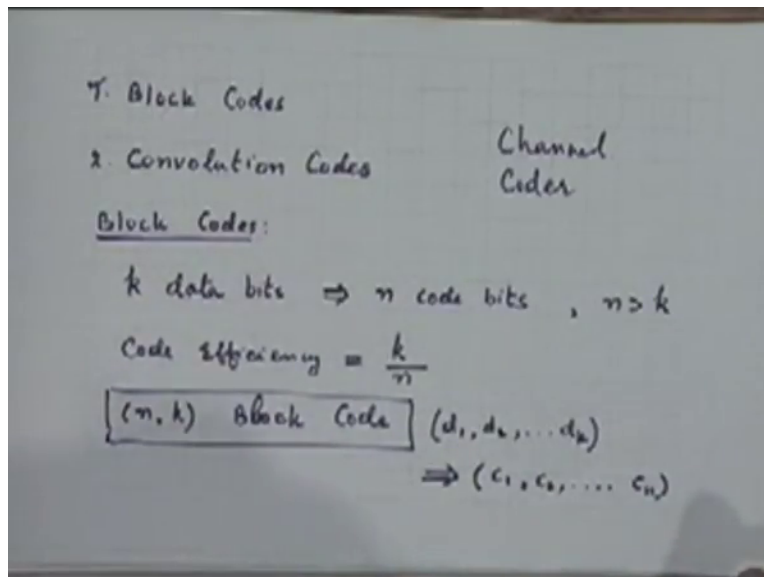 1. Block Codes
2. Convolution Codes
Channel
Coder
Block Codes:
k data bits ⇒ n code bits , n > k
Code Efficiency = k/n
(n, k) Block Code (d₁, d₂, ... dₖ)
⇒ (c₁, c₂, .... cₙ)